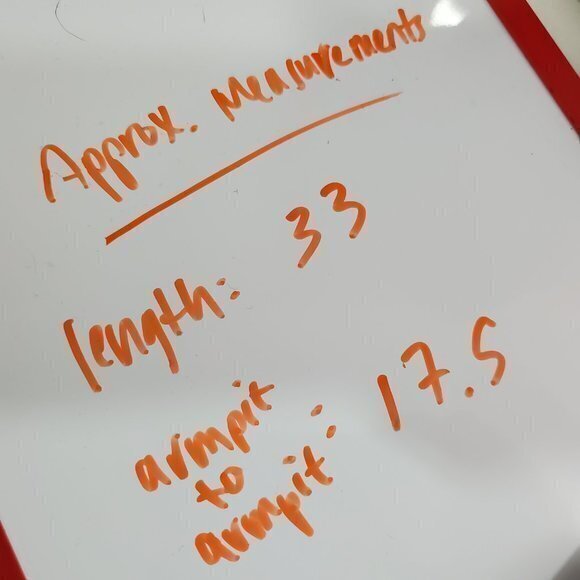 Approx. Measurements
length: 33
armpit
to
armpit: 17.5